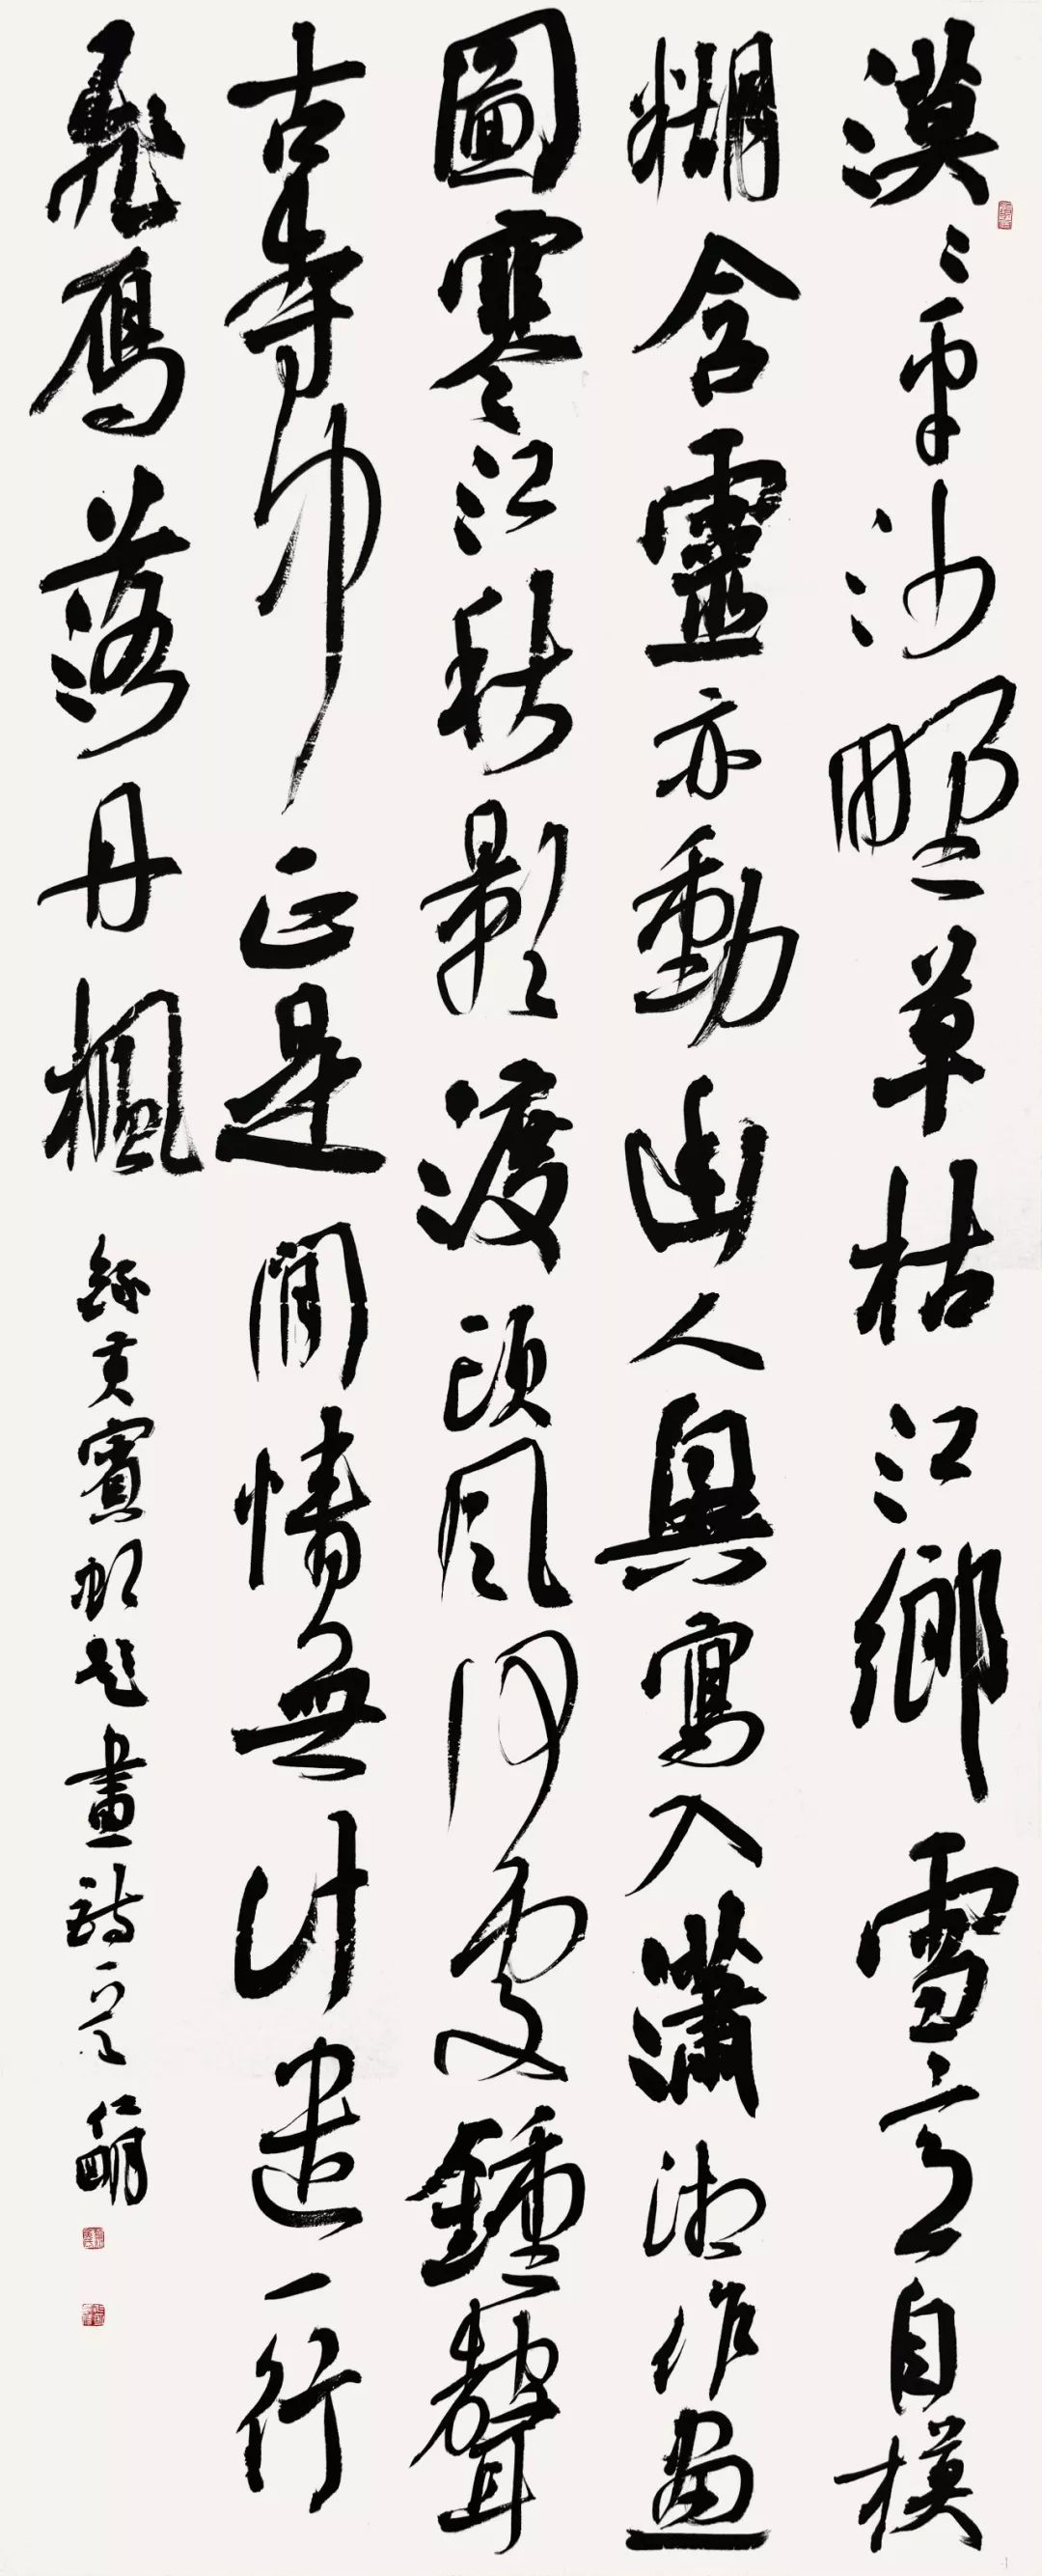 漠〻平沙野草枯江鄉雪意自模
糊含靈亦動幽人興寫入瀟湘作畫
圖寒江秋影渡頭風何處鍾聲
古寺中正是閒情無計遣一行
飛鴈落丹楓 錄黃賓虹題畫詩 仁